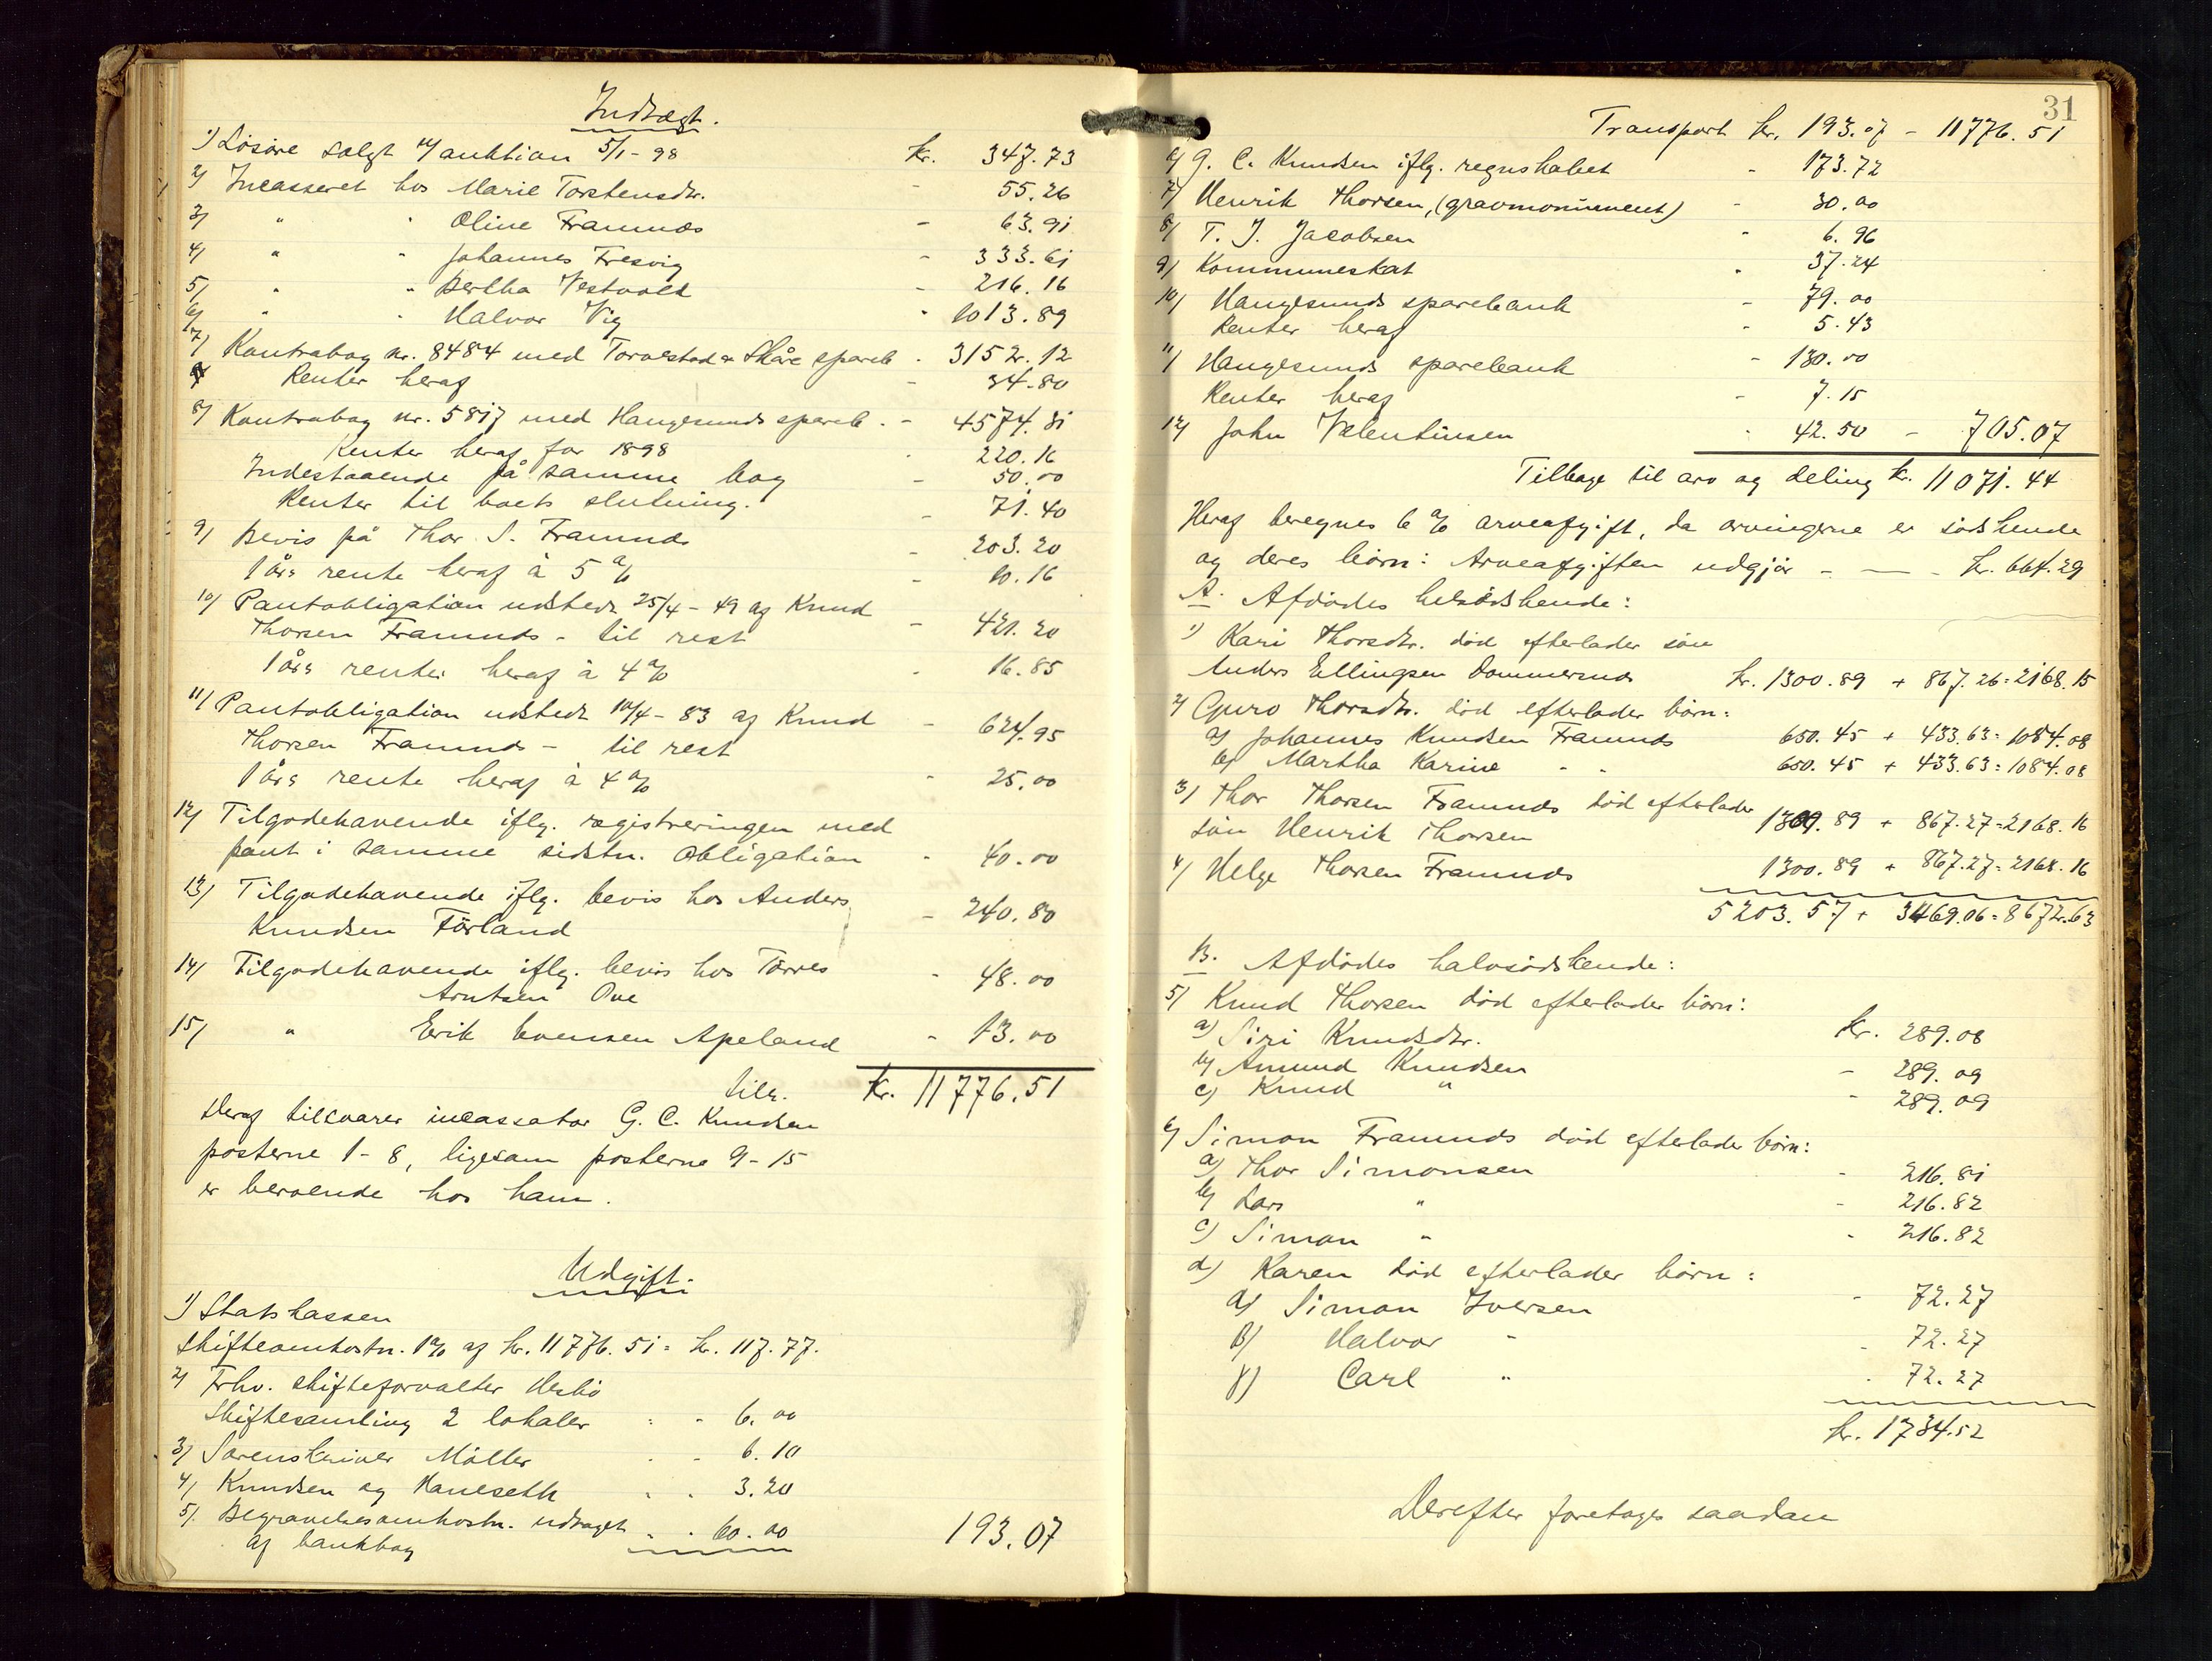 Indtægt.
1) Løsøre solgt v/ auktion 5/1 - 98 kr. 347.73
2) Incasseret hos Marie Torstensdtr. - 55.26
3) " " Oline Framnæs - 63.91
4) " " Johannes Fresvig - 333.61
5) " " Bertha Vestvold - 216.16
6) " " Halvor Vig - 1013.89
7) Kontrabog nr. 8484 med Torvestad & Skåre spareb. - 3152.12
Renter heraf - 34.80
8) Kontrabog nr. 5817 med Haugesunds spareb. - 4574.81
Renter heraf for 1898 - 220.16
Indestaaende på samme bog - 50.00
Renter til boets slutning. - 71.40
9) Bevis på Thor S. Framnæs - 203.20
1 års rente heraf à 5 % - 10.16
10) Pantobligation udstedt 25/4 - 49 af Knud
Thorsen Framnæs - til rest - 421.20
1 års renter heraf à 4 % - 16.85
11) Pantobligation udstedt 10/4 - 83 af Knud
Thorsen Framnæs - til rest - 624.95
1 års rente heraf à 4 % - 25.00
12) Tilgodehavende iflg. registreringen med
pant i samme sidstn. obligation - 40.00
13) Tilgodehavende iflg. bevis hos Anders
Knudsen Förland - 240.80
14) Tilgodehavende iflg. bevis hos Törres
Arntsen Ove - 48.00
15) " Erik Evensen Apeland - 13.00
tils. Kr. 11776.51
Heraf tilsvarer incassator G. C. Knudsen
posterne 1 - 8, ligesom posterne 9 - 15
er beroende hos ham.
Udgift.
1) Statskassen
Skifteomkostn. 1% af kr. 11776.51 = kr. 117.77.
2) Frhv. skifteforvalter Hesbö
Skiftesamling 2 lokaler - 6.00
3) Sorenskriver Möller - 6.10
4) Knudsen og Haneseth - 3.20
5) Begravelsesomkostn. udtaget - 60.00
af bankbog 193.07
31
Transport kr. 193.07 - 11776.51
6) G. C. Knudsen iflg. regnskabet - 173.72
7) Henrik Thorsen, (gravmonument) - 30.00
8) T. J. Jacobsen - 6.96
9) Kommuneskat - 37.24
10) Haugesunds sparebank - 79.00
Renter heraf - 5.43
11) Haugesunds sparebank - 130.00
Renter heraf - 7.15
12) John Valentinsen - 42.50 - 705.07
Tilbage til arv og deling kr. 11071.44
Heraf beregnes 6 % arveafgift, da arvingerne er södskende
og deres börn: Arveafgiften udgjør - — - kr. 664.29
A. Afdödes helsödskende:
1) Kari Thorsdtr. död efterlader sön
Anders Ellingsen Dommersnæs kr. 1300.89 + 867.26 = 2168.15
2) Guro Thorsdtr. död efterlader börn:
a) Johannes Knudsen Framnæs 650.45 + 433.63 = 1084.08
b) Martha Karine - - 650.45 + 433.63 = 1084.08
3) Thor Thorsen Framnæs död efterlader
sön Henrik Thorsen 1300.89 + 867.27 = 2168.16
4) Helge Thorsen Framnæs 1300.89 + 867.27 = 2168.16
5203.57 + 3469.06 = 8672.63
B. Afdödes halvsödskende:
5) Knud Thorsen död efterlader börn:
a) Siri Knudsdtr. kr. 289.08
b) Amund Knudsen - 289.09
c) Knud " - 289.09
6) Simon Framnæs död efterlader börn:
a) Thor Simonsen - 216.81
b) Lars " - 216.82
c) Simon " - 216.82
d) Karen död efterlader börn:
α) Simon Iversen - 72.27
β) Halvor " - 72.27
γ) Carl " - 72.27
kr. 1734.52
Derefter foretoges saadan